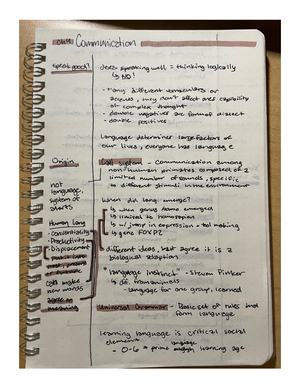 Ch4 Communication
speak good?
does speaking well = thinking logically
↳ NO!
- many different vernaculars or accents, they don't affect ones capability of complex thought
- double negatives are formal dialect
- double positives
language determines large factors of our lives, everyone has language
Origin
Call system - communication among nonhuman primates composed of a limited number of sounds, specific to different stimuli in the environment
not language, system of
When did lang. emerge?
↳ when genus homo emerged
↳ limited to homosapien
↳ w/ jump in expression + tool making
↳ gene FOXP2
Human lang
- conventionality
- Productivity
- Displacement
different ideas, but agree it is a biological adaption
"language instinct" - Steven Pinker
↳ def. from animals
- language for one group, learned
can make new words
meaning
Universal Grammar - Basic set of rules that form language
learning language is critical social element
- 0-6 = prime language learning age